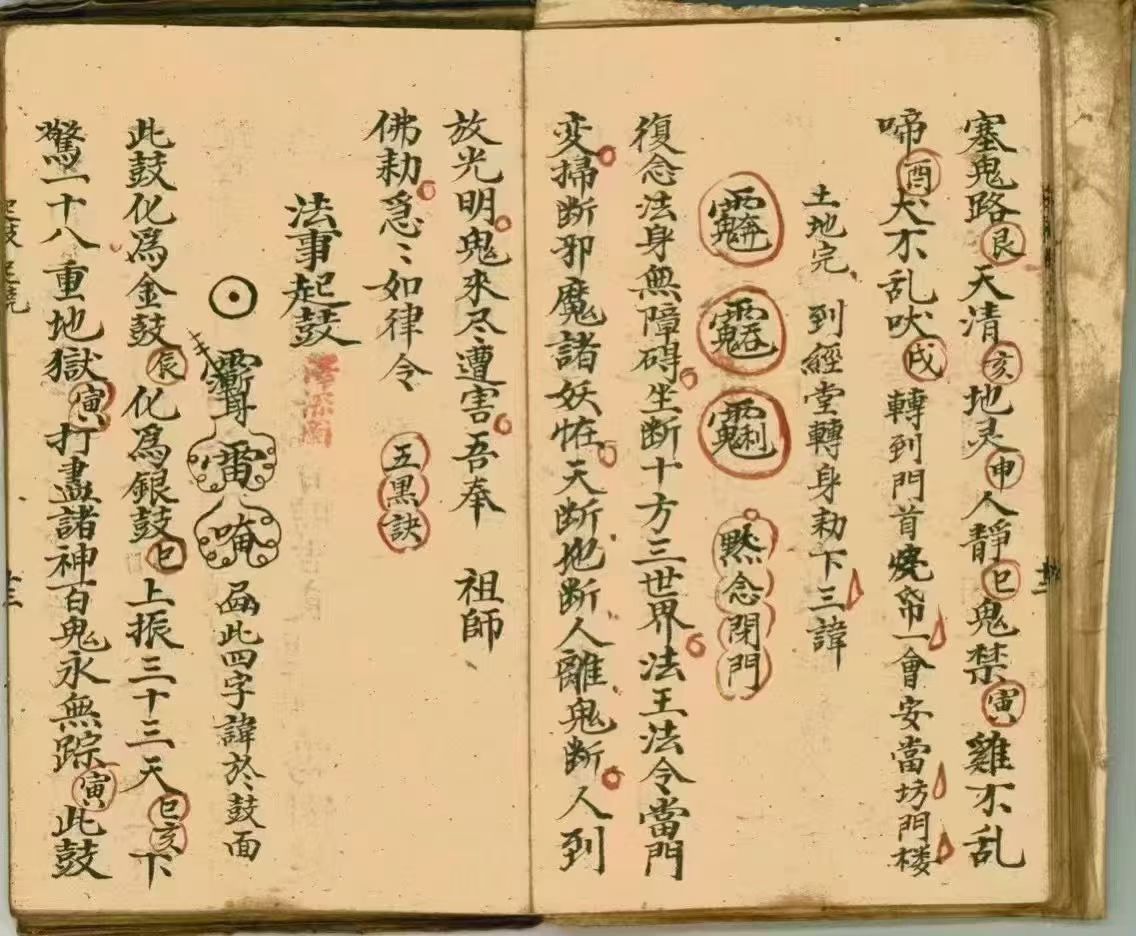 塞鬼路艮天清亥地灵申人靜巳鬼禁寅雞不乱
啼酉犬不乱吠戌轉到門首燒帋一會安當坊門楼
土地完 到經堂轉身勅下三諱
黙念閉門
復念法身無障碍坐断十方三世界法王法令當門
変掃断邪魔諸妖怪天断地断人離鬼断人到
放光明鬼來尽遭害吾奉 祖師
佛勅急〻如律令 五黑訣
法事起鼓
雷 唵 此四字諱於鼓面
此鼓化爲金鼓辰化爲銀鼓巳上振三十三天巳亥下
驚一十八重地獄寅打盡諸神百鬼永無踪寅此鼓